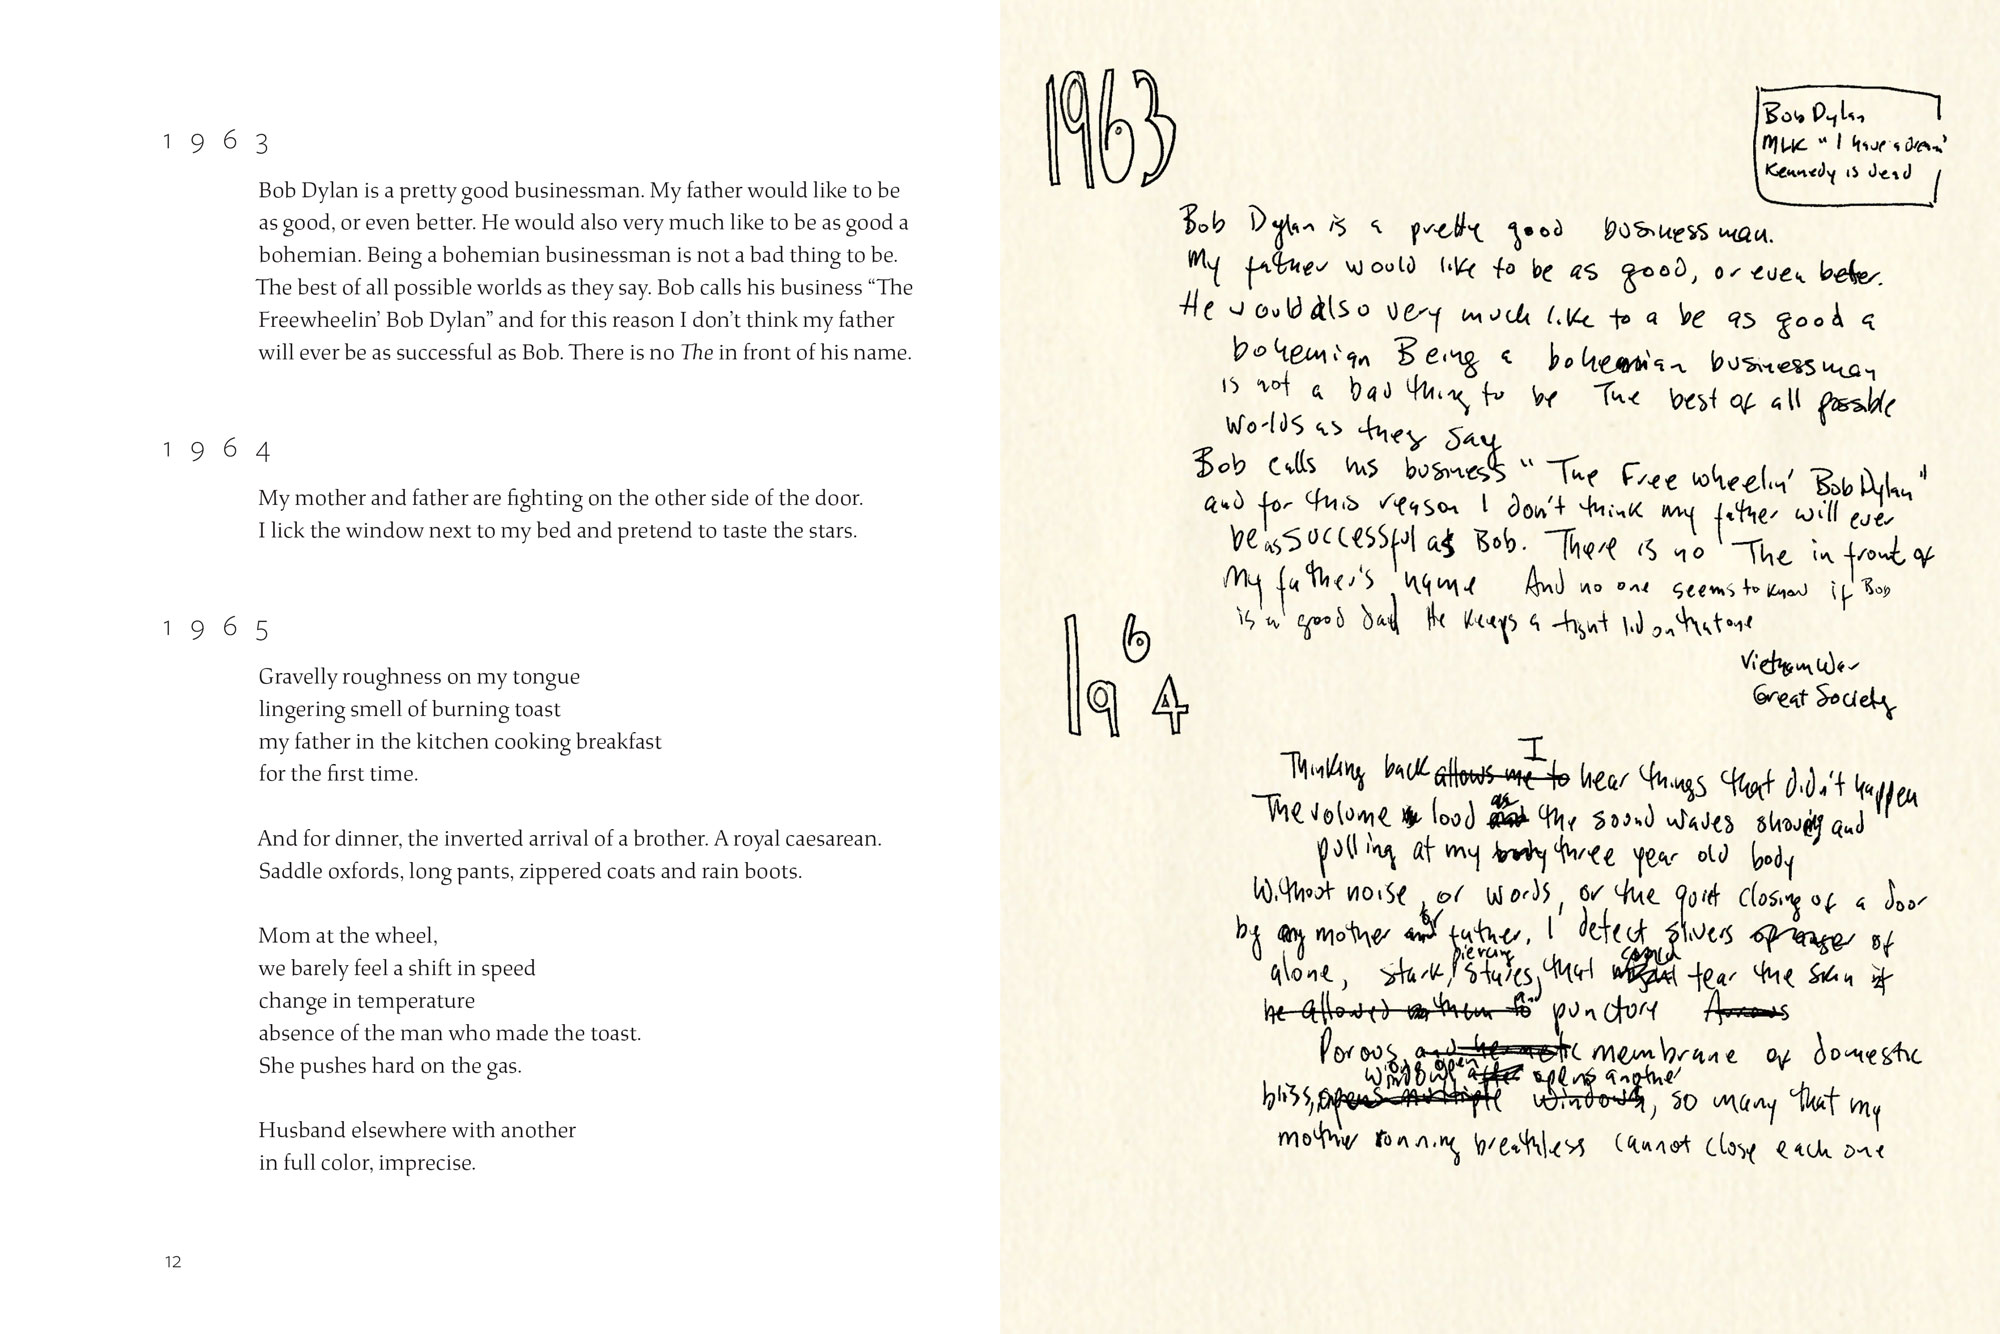 1 9 6 3
Bob Dylan is a pretty good businessman. My father would like to be
as good, or even better. He would also very much like to be as good a
bohemian. Being a bohemian businessman is not a bad thing to be.
The best of all possible worlds as they say. Bob calls his business “The
Freewheelin’ Bob Dylan” and for this reason I don’t think my father
will ever be as successful as Bob. There is no The in front of his name.
1 9 6 4
My mother and father are fighting on the other side of the door.
I lick the window next to my bed and pretend to taste the stars.
1 9 6 5
Gravelly roughness on my tongue
lingering smell of burning toast
my father in the kitchen cooking breakfast
for the first time.
And for dinner, the inverted arrival of a brother. A royal caesarean.
Saddle oxfords, long pants, zippered coats and rain boots.
Mom at the wheel,
we barely feel a shift in speed
change in temperature
absence of the man who made the toast.
She pushes hard on the gas.
Husband elsewhere with another
in full color, imprecise.
12
1963
Bob Dylan
MLK "I have a dream"
Kennedy is dead
Bob Dylan is a pretty good businessman.
My father would like to be as good, or even better.
He would also very much like to a be as good a
bohemian Being a bohemian businessman
is not a bad thing to be The best of all possible
worlds as they say
Bob calls his business "The Free wheelin' Bob Dylan"
and for this reason I don't think my father will ever
be as successful as Bob. There is no The in front of
my father's name And no one seems to know if Bob
is a good dad He keeps a tight lid on that one
1964
Vietnam War
Great Society
I
Thinking back allows me to hear things that didn't happen
as
The volume loud and the sound waves shoving and
pulling at my body three year old body
Without noise, or words, or the quiet closing of a door
or
by my mother and father, I detect slivers of anger of
piercing could
alone, stark, stares, that might tear the skin if
he allowed them to puncture Arrows
Porous, and hermetic membrane of domestic
one open
window after opens another
bliss, opens multiple windows, so many that my
mother running breathless cannot close each one